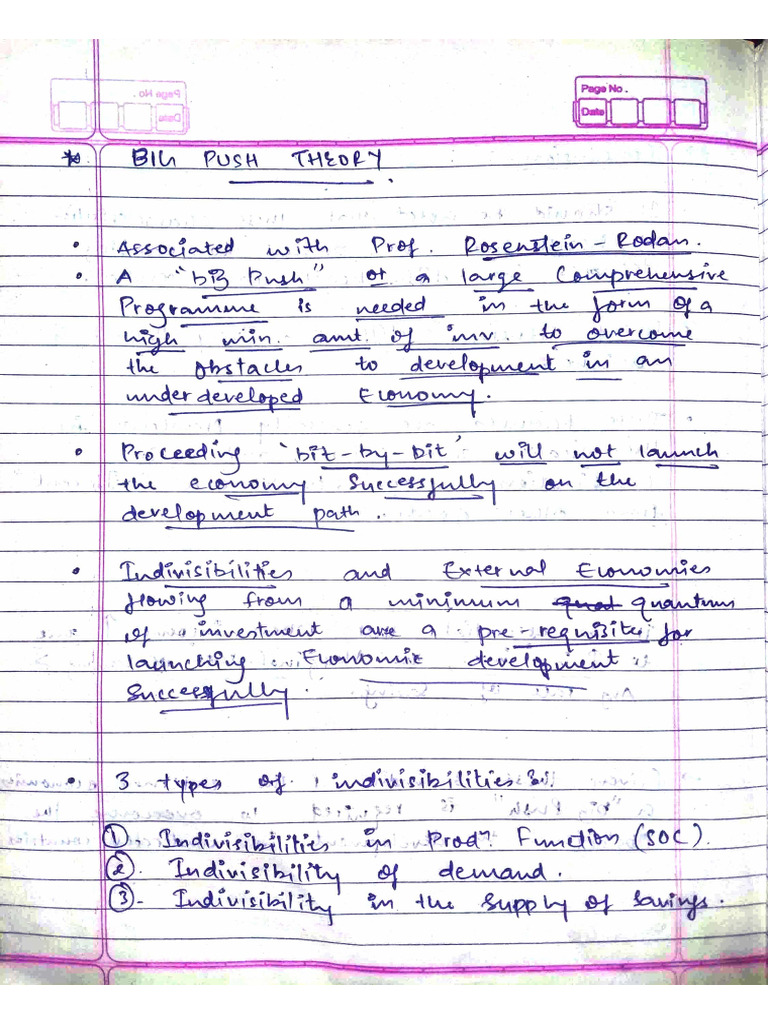 Page No.
Date
* BIG PUSH THEORY.
• Associated with Prof. Rosenstein-Rodan.
• A "big push" or a large comprehensive
Programme is needed in the form of a
high min. amt. of inv. to overcome
the obstacles to development in an
underdeveloped Economy.
• Proceeding 'bit-by-bit' will not launch
the economy successfully on the
development path.
• Indivisibilities and External Economies
flowing from a minimum quantum
of investment are a pre-requisite for
launching Economic development
Successfully.
• 3 types of indivisibilities :
① Indivisibilities in Prodⁿ. Function (SOC).
②. Indivisibility of demand.
③- Indivisibility in the supply of savings.